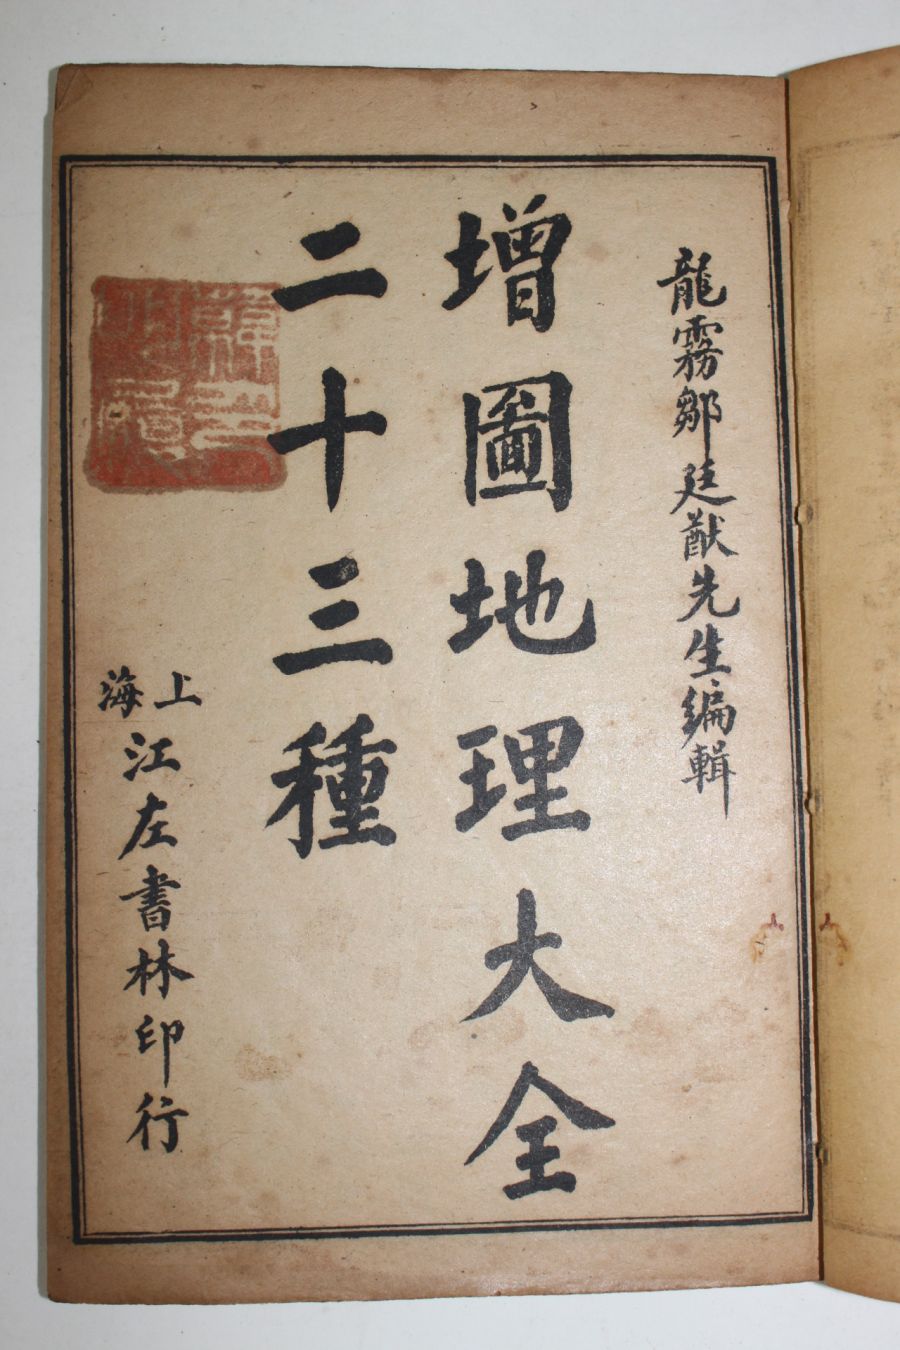 龍霧鄒廷猷先生編輯
增圖地理大全
二十三種
上海
江左書林印行